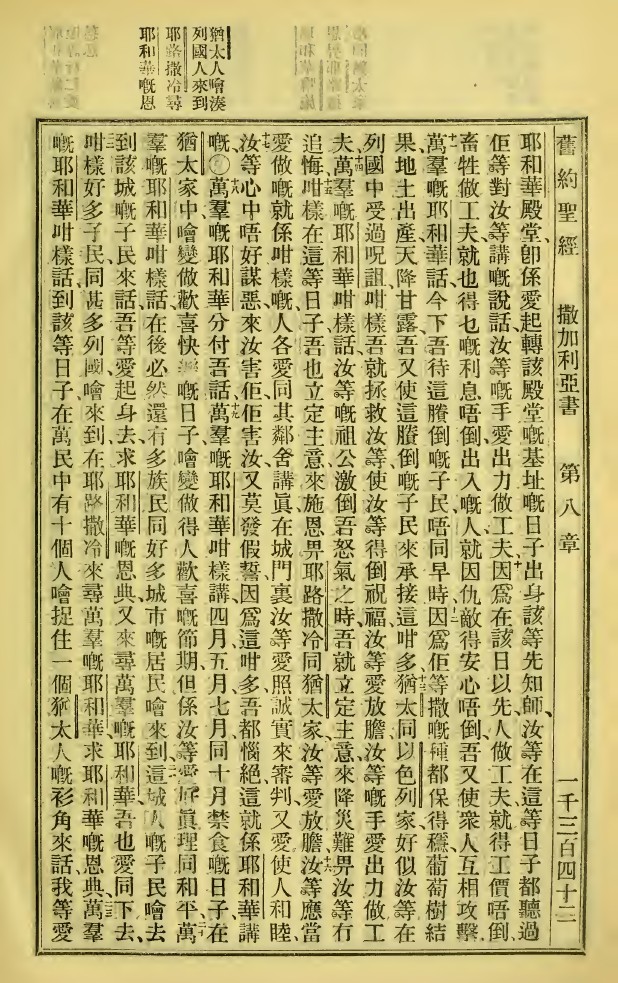 猶太人噲湊
列國人來到
耶路撒冷尋
耶和華嘅恩
舊約聖經 撒加利亞書 第八章 一千三百四十二
耶和華殿堂、卽係愛起轉該殿堂嘅基址嘅日子出身該等先知師、汝等在這等日子都聽過
佢等對汝等講嘅說話、汝等嘅手愛出力做工夫、十因爲在該日以先人做工夫就得工價唔倒、
畜牲做工夫、就也得乜嘅利息唔倒、出入嘅人就因仇敵得安心唔倒、吾又使衆人互相攻擊、
十一萬羣嘅耶和華話、今下吾待這賸倒嘅子民唔同早時、十二因爲佢等撒嘅種都保得穩、葡萄樹結
果、地土出產、天降甘露、吾又使這賸倒嘅子民來承接這咁多、十三猶太同以色列家、好似汝等在
列國中受過呪詛、咁樣吾就拯救汝等、使汝等得倒祝福、汝等愛放膽、汝等嘅手愛出力做工
夫、十四萬羣嘅耶和華咁樣話、汝等嘅祖公激倒吾怒氣之時、吾就立定主意來降災難畀汝等、冇
追悔、十五咁樣在這等日子吾也立定主意來施恩畀耶路撒冷同猶太家、汝等愛放膽、十六汝等應當
愛做嘅就係咁樣嘅、人各愛同其鄰舍講眞、在城門裏汝等愛照誠實來審判、又愛使人和睦、
十七汝等心中唔好謀惡來汝害佢佢害汝、又莫發假誓、因爲這咁多吾都惱絕、這就係耶和華講
嘅、〇十八萬羣嘅耶和華分付吾話、十九萬羣嘅耶和華咁樣講、四月五月七月同十月禁食嘅日子、在
猶太家中噲變做歡喜快樂嘅日子、噲變做得人歡喜嘅節期、但係汝等愛好眞理同和平、二十萬
羣嘅耶和華咁樣話、在後必然還有多族民同好多城市嘅居民噲來到、二一這城人嘅子民噲去
到該城嘅子民來話、吾等愛起身去求耶和華嘅恩典、又來尋萬羣嘅耶和華、吾也愛同下去、
二二咁樣好多子民同甚多列國噲來到、在耶路撒冷來尋萬羣嘅耶和華、求耶和華嘅恩典、二三萬羣
嘅耶和華咁樣話、到該等日子、在萬民中有十個人噲捉住一個猶太人嘅衫角來話、我等愛